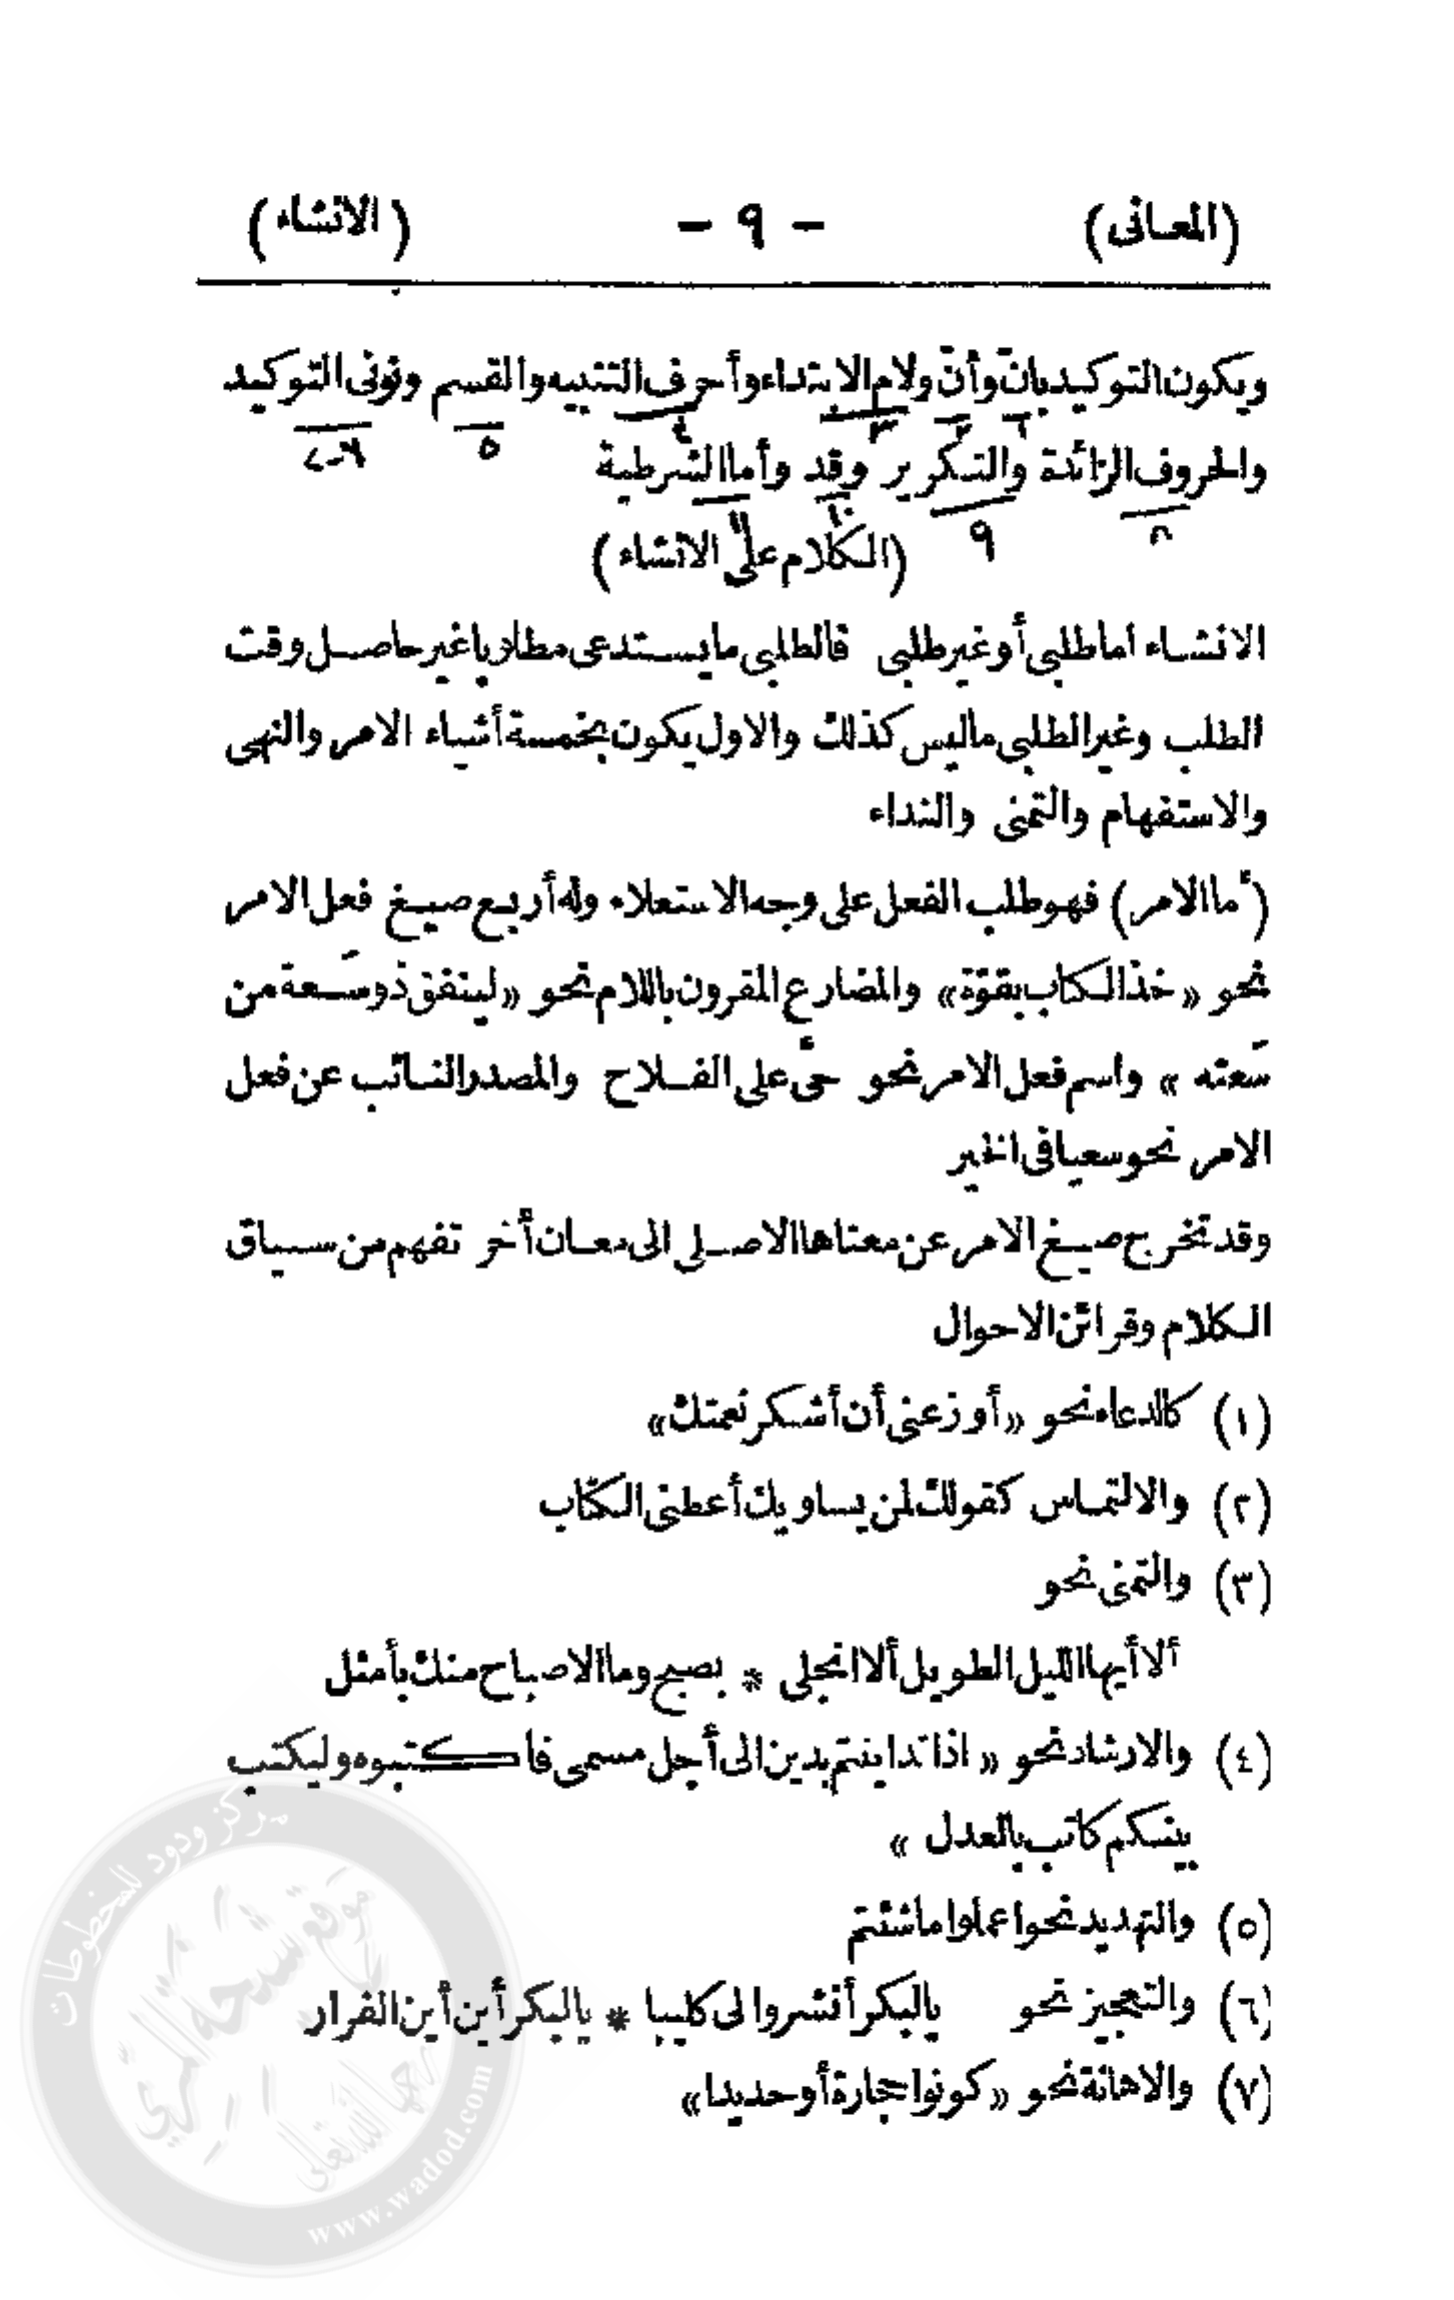 (المعانى) - ٩ - (الانشاء)
ويكون التوكيد بانّ وأنّ ولام الابتداء وأحرف التنبيه والقسم ونونى التوكيد
والحروف الزائدة والتكرير وقد وأما الشرطية
(الكلام على الانشاء)
الانشاء اما طلبى أو غير طلبى فالطلبى ما يستدعى مطلوبا غير حاصل وقت
الطلب وغير الطلبى ما ليس كذلك والاول يكون بخمسة أشياء الامر والنهى
والاستفهام والتمنى والنداء
(أما الامر) فهو طلب الفعل على وجه الاستعلاء وله أربع صيغ فعل الامر
نحو «خذ الكتاب بقوّة» والمضارع المقرون باللام نحو «لينفق ذو سَعة من
سَعته» واسم فعل الامر نحو حىّ على الفلاح والمصدر النائب عن فعل
الامر نحو سعيا فى الخير
وقد تخرج صيغ الامر عن معناها الاصلى الى معان أخر تفهم من سياق
الكلام وقرائن الاحوال
(١) كالدعاء نحو «أوزعنى أن أشكر نعمتك»
(٢) والالتماس كقولك لمن يساويك أعطنى الكتاب
(٣) والتمنى نحو
ألا أيها الليل الطويل ألا انجلى * بصبح وما الاصباح منك بأمثل
(٤) والارشاد نحو «اذا تداينتم بدين الى أجل مسمى فاكتبوه وليكتب
بينكم كاتب بالعدل»
(٥) والتهديد نحو اعملوا ما شئتم
(٦) والتعجيز نحو يالبكر أنشروا لى كليبا * يالبكر أين أين الفرار
(٧) والاهانة نحو «كونوا حجارة أو حديدا»
مركز ودود للمخطوطات
www.wadod.com